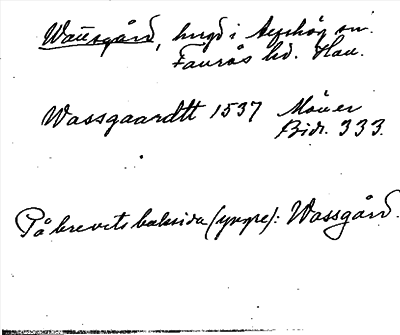 Wæssgård, hmgd i Asphög sn.
Faurås hd. Hall.
Wassgaardtt 1537 Möller
Bidr. 333.
På brevets baksida (yngre): Wassgård.